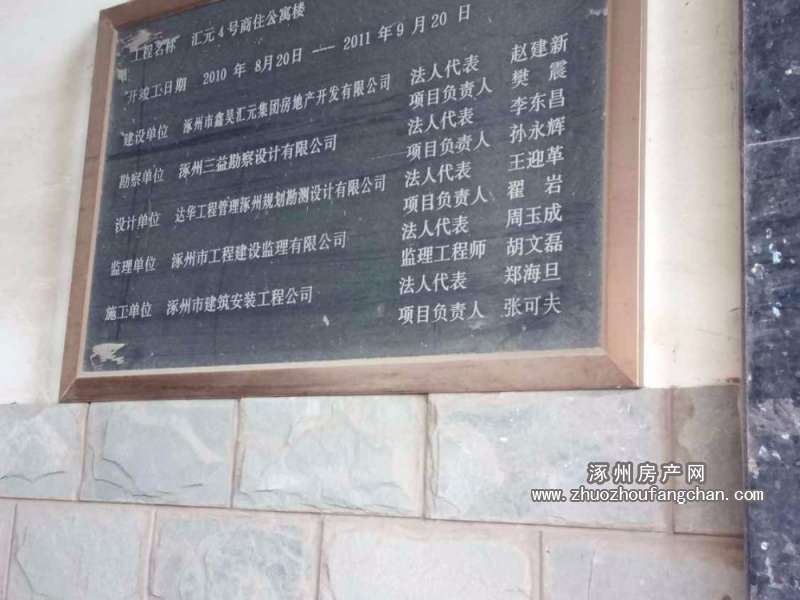 工程名称 汇元4号商住公寓楼
开竣工日期 2010 年 8月20日 —— 2011 年 9 月 20 日
建设单位 涿州市鑫昊汇元集团房地产开发有限公司 法人代表 赵建新
项目负责人 樊 震
勘察单位 涿州三益勘察设计有限公司 法人代表 李东昌
项目负责人 孙永辉
设计单位 达华工程管理涿州规划勘测设计有限公司 法人代表 王迎革
项目负责人 翟 岩
监理单位 涿州市工程建设监理有限公司 法人代表 周玉成
监理工程师 胡文磊
施工单位 涿州市建筑安装工程公司 法人代表 郑海旦
项目负责人 张可夫
涿州房产网
www.zhuozhoufangchan.com